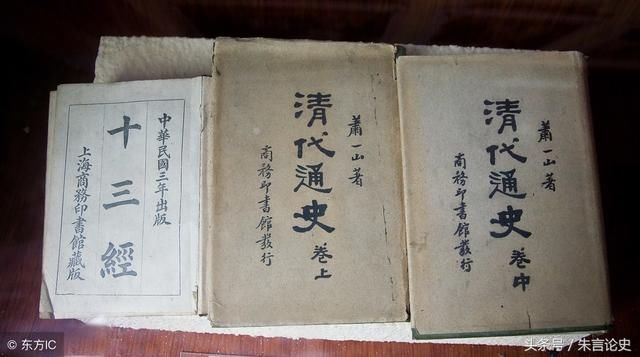 中華民國三年出版
十三經
上海商務印書館藏版
蕭一山著
清代通史 卷上
商務印書館發行
蕭一山著
清代通史 卷中
商務印書館發行
© 东方IC
头条号 / 朱言论史